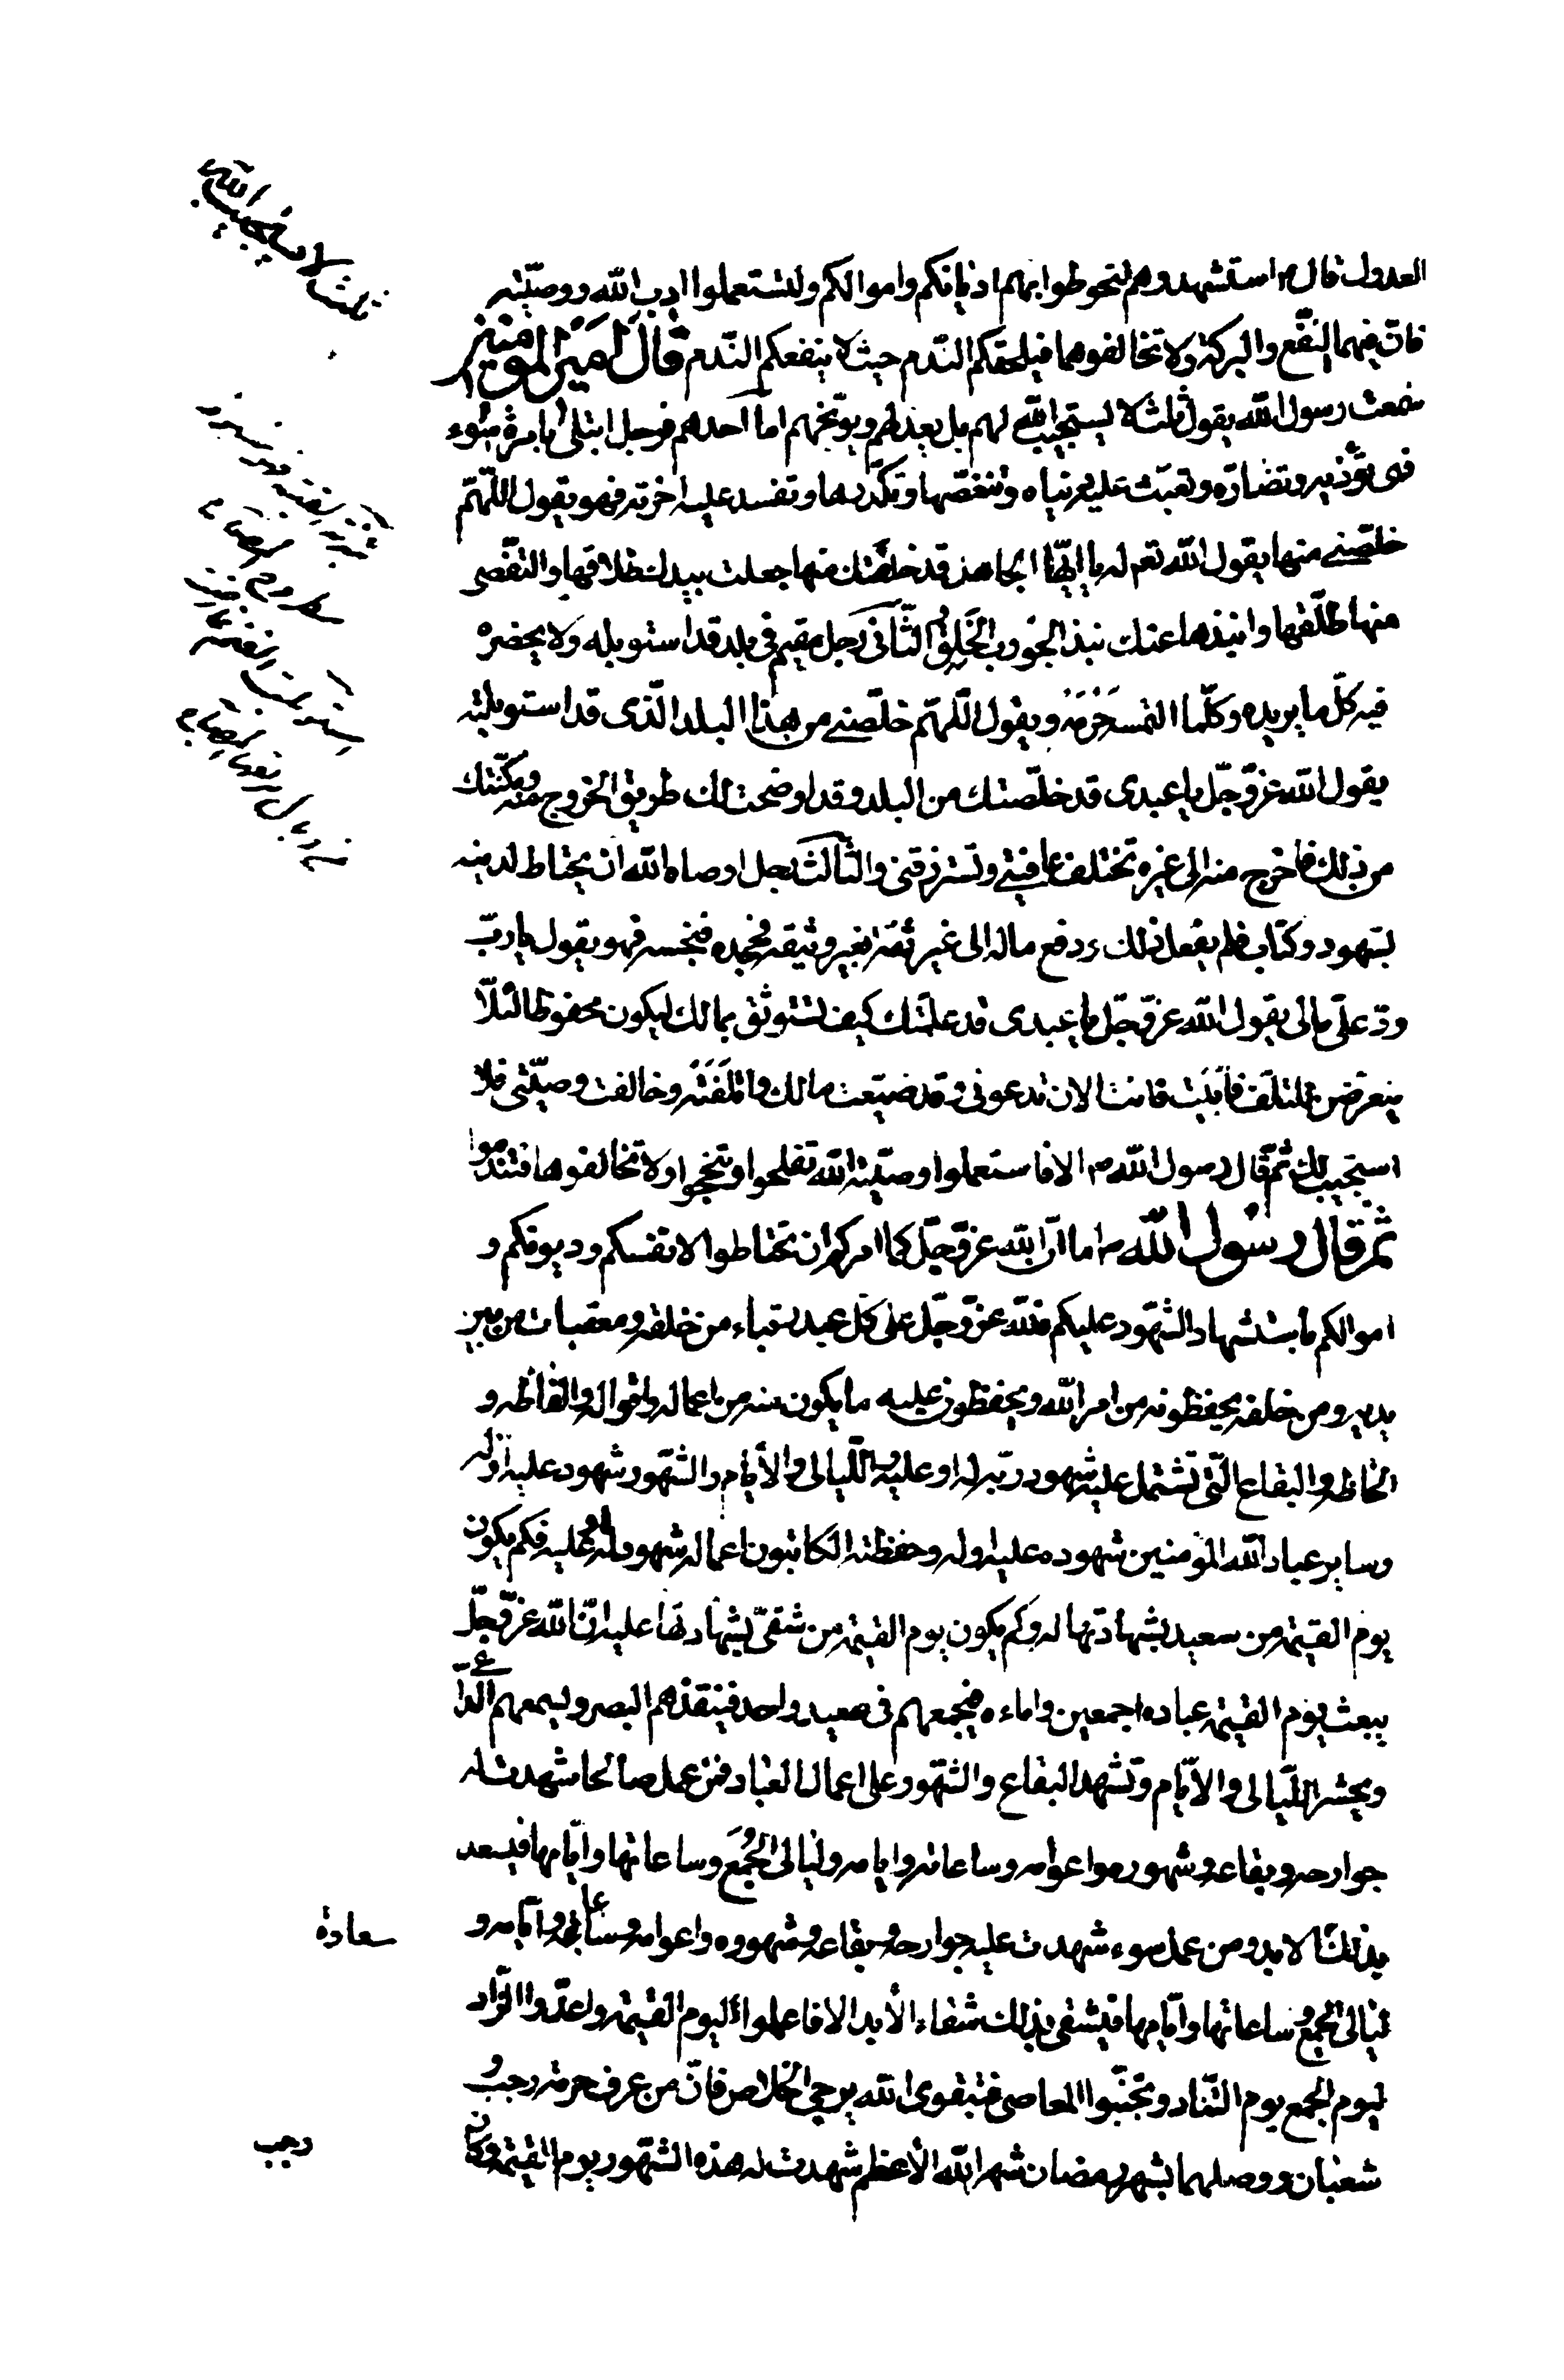 العدول قال م استشهدوهم لتحوطوا بهم اديانكم واموالكم ولتستعملوا ادب الله ووصيّته
فانّ فيهما النّفع والبركة ولا تخالفوهما فيلحقكم النّدم حيث لا ينفعكم النّدم قال امير المومنين
سمعت رسول الله يقول ثلثة لا يستجيب الله لهم بل يعذلهم ويوبّخهم اما احدهم فرجل ابتلى بامرة سوء
فهى تؤذيه وتضارّه وتعيب عليه دنياه وتنغّصها وتكدّرها وتفسد عليه اخرته فهو يقول اللّهمّ
خلّصنى منها يقول الله تعم له يا ايّها الجاهل قد خلّصتك منها جعلت بيدك طلاقها والتفصى
منها طلّقها وانبذها عنك نبذ الجورب الخلق الثّانى رجل مقيم فى بلد قد استوبله ولا يحضره
فيه كلّ ما يريده وكلّما التمسه حرمه ويقول اللّهمّ خلّصنى من هذا البلد الّذى قد استوبلته
يقول الله عزّ وجلّ يا عبدى قد خلّصتك من البلد وقد اوضحت لك طريق الخروج منه ومكّنتك
من ذلك فاخرج منه الى غيره تختلف عافيتى وتسترزقنى والثّالث رجل اوصاه الله ان يحتاط لدينه
بشهود وكتاب فلم يفعل ذلك ودفع ماله الى غير ثقة بغير وثيقة فجحده فبخسه فهو يقول يا ربّ
ردّ علىّ مالى يقول الله عزّ وجلّ يا عبدى قد علمتك كيف تستوثق بمالك ليكون محفوظا لئلّا
يتعرّض للتلف فأبيت فانت الان تدعونى وقد ضيّعت مالك واتلفته وخالفت وصيّتى فلا
استجيب لك ثمّ قال رسول الله م الا فاستعملوا وصيّة الله تفلحوا وتنجحوا ولا تخالفوها فتندموا
ثم قال رسول الله م اما انّ الله عزّ وجلّ كما امركم ان تحتاطوا لانفسكم وديونكم و
اموالكم باستشهاد الشّهود عليكم فلله عزّ وجلّ على كلّ عبد رقباء من خلقه ومعقبات من بين
يديه ومن خلفه يحفظونه من امر الله ويحفظون عليه ما يكون منه من اعماله واقواله والفاظه و
الحاظه والبقاع الّتى تشتمل عليه شهود ربّه له او عليه واللّيالى والأيّام والشّهور شهود عليه او له
وساير عباد الله المؤمنين شهوده عليه او له وحفظته الكاتبون اعماله شهود له او عليه فكم يكون
يوم القيٰمة من سعيد بشهادتها له وكم يكون يوم القيٰمة من شقىّ بشهادتها عليه انّ الله عزّ وجلّ
يبعث يوم القيٰمة عباده اجمعين واماءه فيجمعهم فى صعيد واحد فينفذهم البصر ويسمعهم الدّاعى
ويحشر اللّيالى والأيّام وتشهد البقاع والشهور على اعمال العباد فمن عمل صالحا شهدت له
جوارحه وبقاعه وشهوره واعوامه وساعاته وايامه وليالى الجُمَع وساعاتها وايّامها فيسعد
بذلك الابد ومن عمل سوء شهدت عليه جوارحه وبقاعه وشهوره واعوامه وساعاته وايّامه و
سعادة
ليالى الجمع وساعاتها وايّامها فيشقى بذلك شقاء الأبد الا فاعملوا اليوم القيٰمة واعدّوا الزّاد
ليوم الجمع يوم التّناد وتجنّبوا المعاصى فبتقوى الله يرجى الخلاص فانّ من عرف حرمة رجب و
شعبان ووصلهما بشهر رمضان شهر الله الأعظم شهدت له هذه الشّهور يوم القيٰمة وكان
رجب